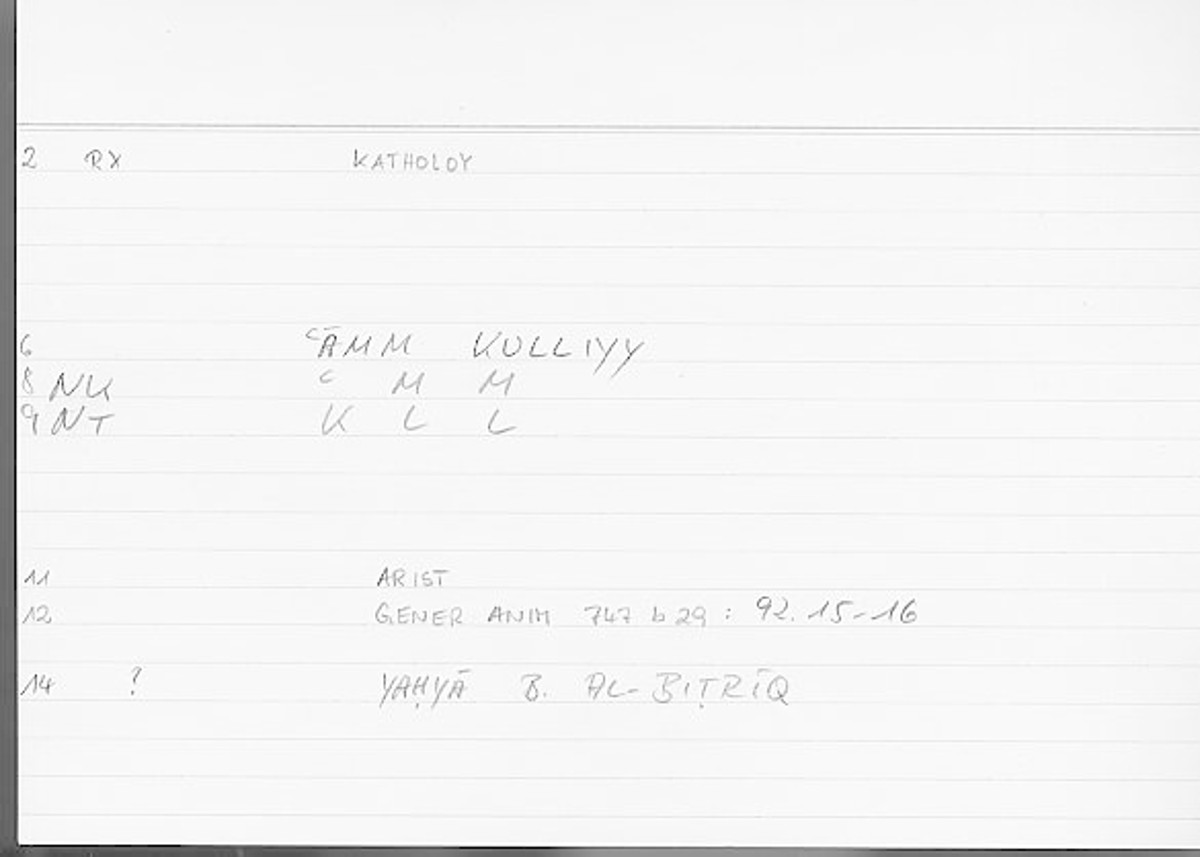 2 RX KATHOLOY
6 ʿĀMM KULLIYY
8 NK ʿ M M
9 NT K L L
11 ARIST
12 GENER ANIM 747 b 29 : 92. 15-16
14 ? YAḤYĀ B. AL-BIṬRĪQ